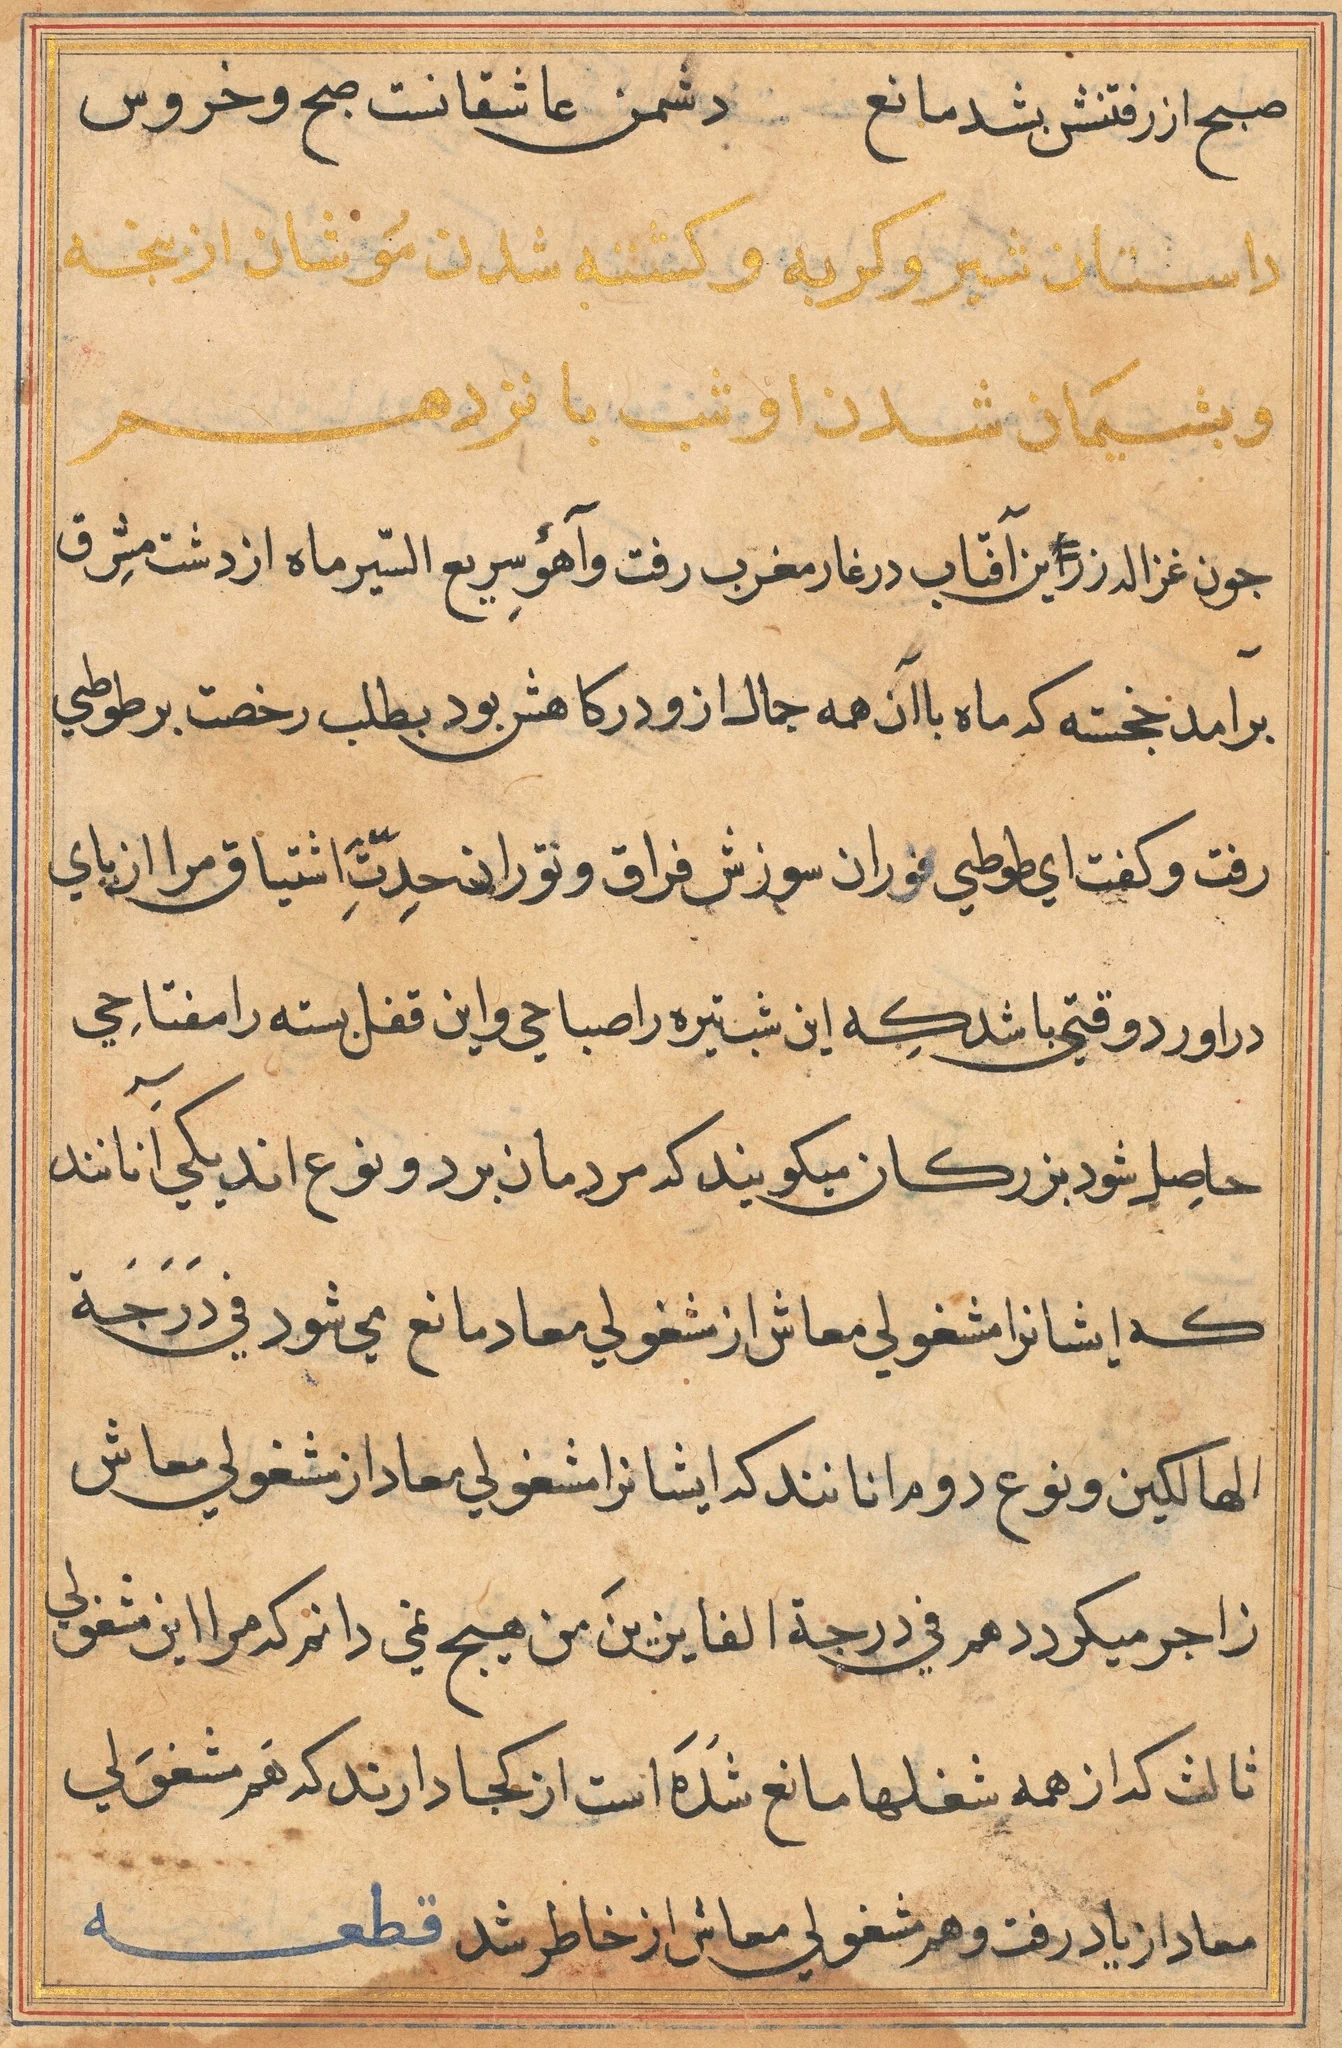 صبح از رفتنش بشد مانع دشمن عاشقانست صبح و خروس
داستان شیر و کربه و کشته شدن موشان از بچه
و بشیمان شدن او شب بانزدهم
جون غزاله زرین آفتاب در غار مغرب رفت و آهؤ سریع السّیر ماه از دشت مشرق
برآمد خجسته که ماه باآن همه جمال ازو در کاهش بود بطلب رخصت بر طوطي
رفت و کفت اي طوطي فوران سوزش فراق و توران حدّتِ اشتیاق مرا از پاي
دراورد وقتي باشد که این شب تیره را صباحي و این قفل بسته را مفتاحي
حاصل شود بزرکان میکویند که مردمان بر دو نوع اند یکي آنانند
که ایشانرا مشغولي معاش از مشغولي معاد مانع مي شود في دَرَجَة
الهالکین و نوع دوم انانند که ایشانرا مشغولي معاد از مشغولي معاش
زاجر میکردد هم في درجة الفایزینَ من هیچ نمي دانم که مرا این مشغولي
ثالث که از همه شغلها مانع شده است از کجا دارند که هَم مشغولي
معاد از یاد رفت و هم مشغولي معاش از خاطر شد قطعه